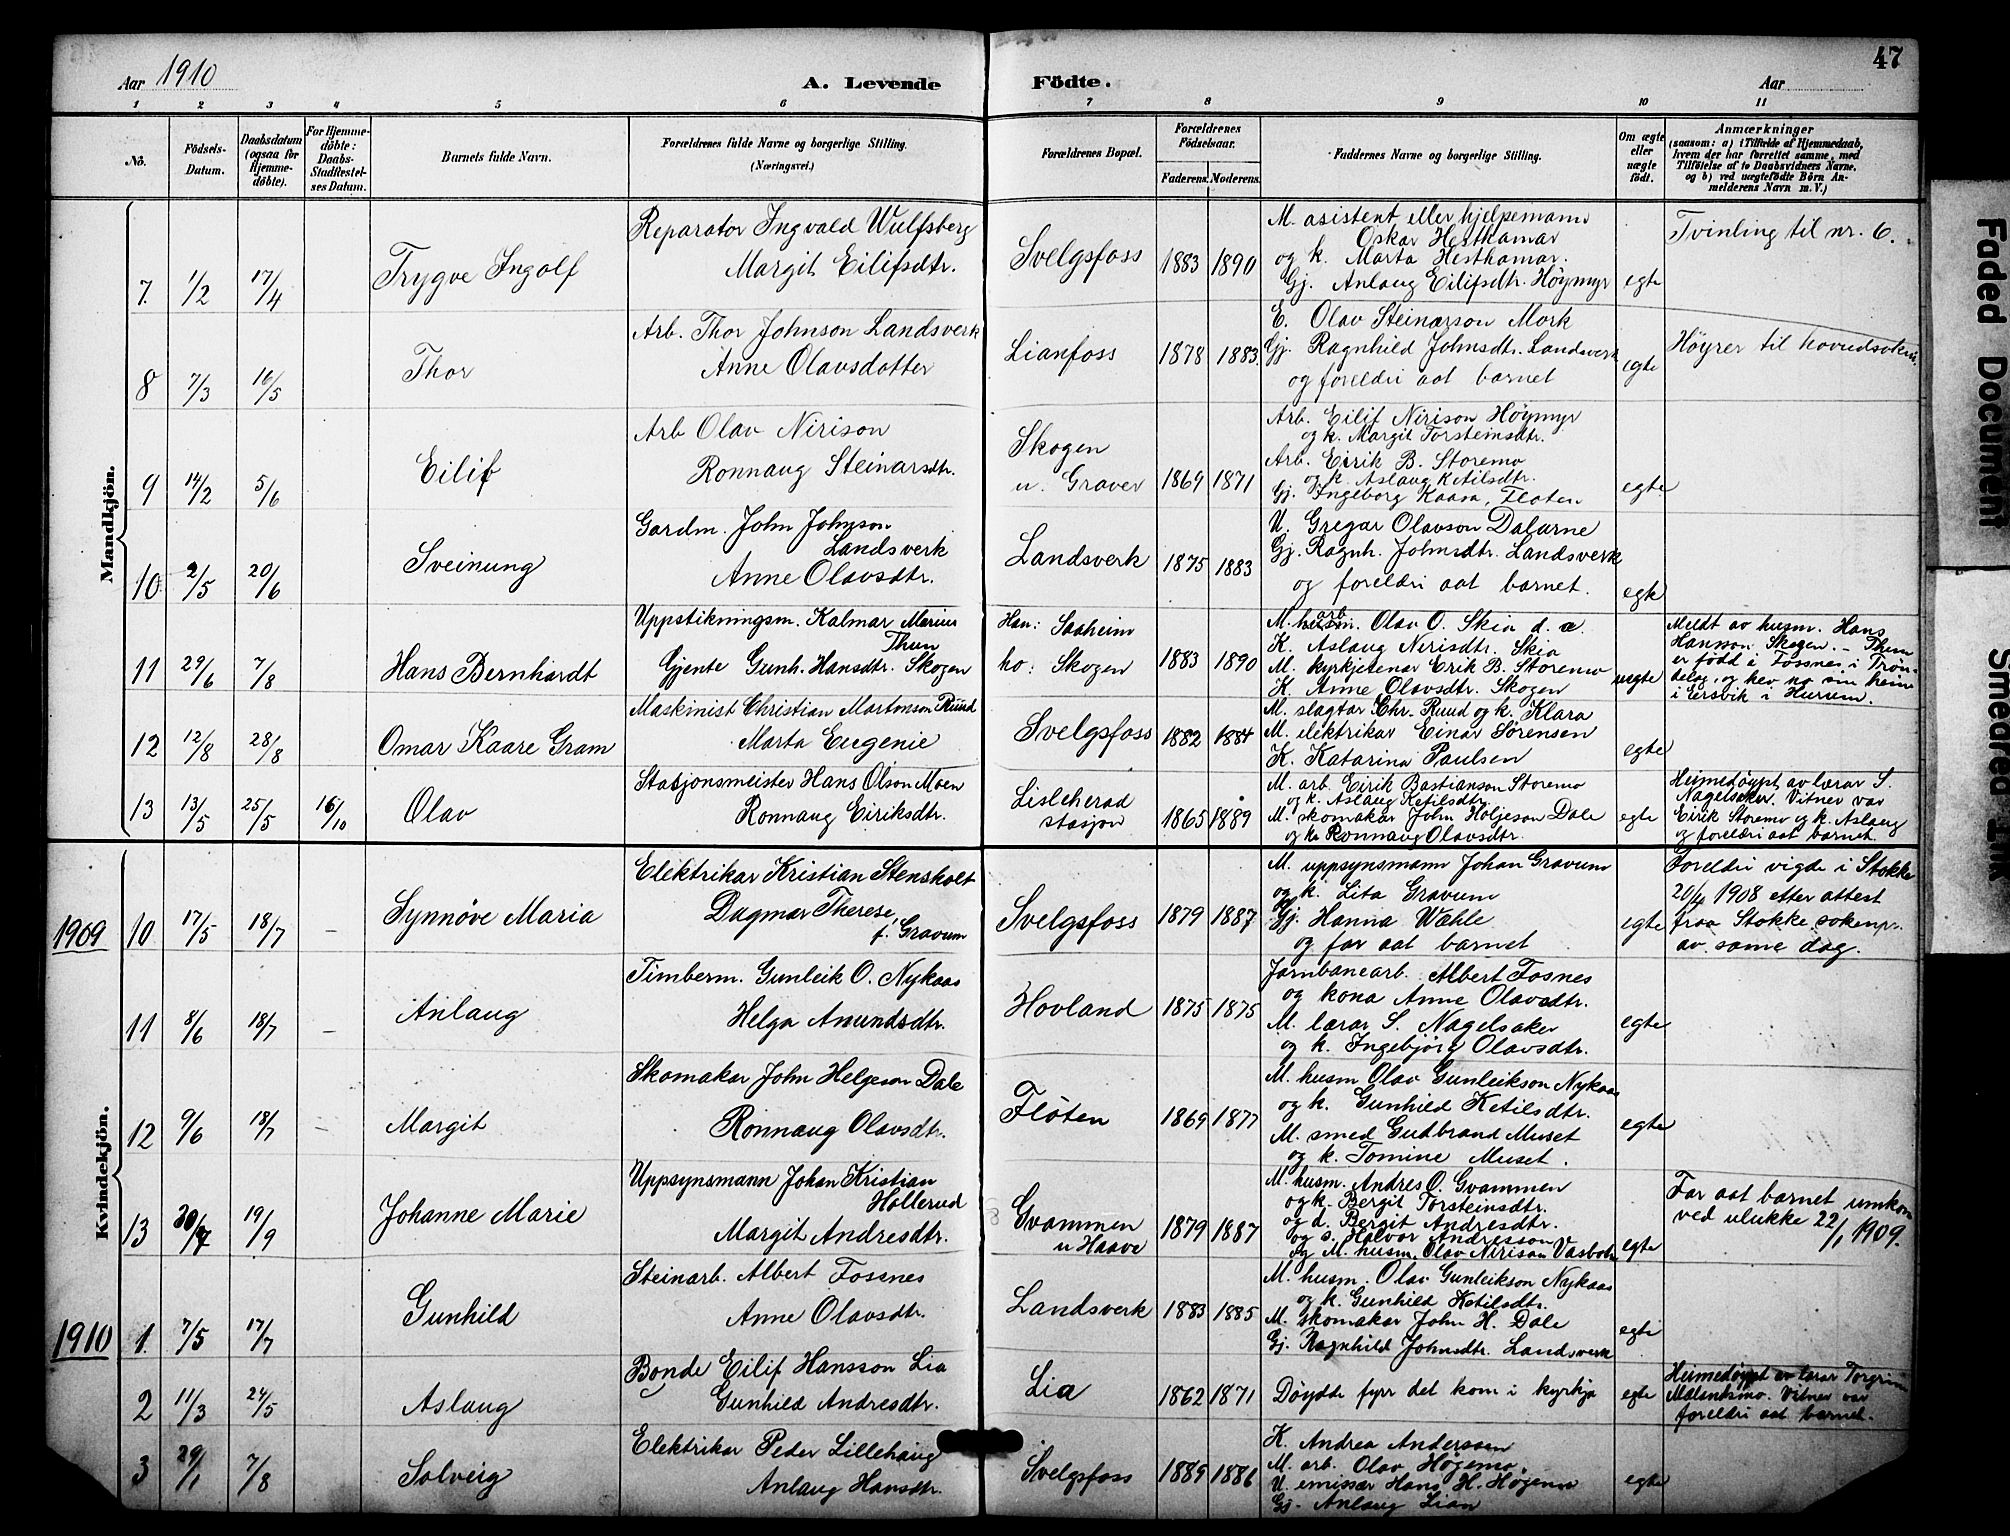 47
Aar 1910
A. Levende Födte.
Aar
1 2 3 4 5 6 7 8 9 10 11
No.
Födsels-Datum.
Daabsdatum (ogsaa for Hjemme-döbte).
For Hjemme-döbte: Daabs-Stadfæstel-ses Datum.
Barnets fulde Navn.
Forældrenes fulde Navne og borgerlige Stilling. (Næringsvei.)
Forældrenes Bopæl.
Forældrenes Födselsaar.
Faderens. Moderens.
Faddernes Navne og borgerlige Stilling.
Om ægte eller uægte födt.
Anmærkninger
(saasom: a) i Tilfælde af Hjemmedaab,
hvem der har forrettet samme, med
Tilföielse af to Daabsvidners Navne,
og b) ved uægtefödte Börn An-
melderens Navn m. V.)
Mandkjön.
7. 1/2 17/4 Trygve Ingolf
Reparatør Ingvald Wulfsberg
Margit Eilifsdtr.
Svelgsfoss 1883 1890
M. asistent eller hjelpemann
Oskar Hesthamar
og k. Marta Hesthamar.
Gj. Anlaug Eilifsdtr. Höymyr
egte
Tvinling til nr. 6.
8 7/3 16/5 Thor
Arb. Thor Johnson Landsverk
Anne Olavsdotter
Lianfoss 1878 1883.
E. Olav Steinarson Mork
Gj. Ragnhild Johnsdtr. Landsverk
og foreldri aat barnet
egte
Höyrer til hovudsokni.
9 14/2 5/6 Eilif
Arb Olav Nirison
Ronnaug Steinarsdtr.
Skogen
u. Graver 1869 1871
Arb. Eilif Nirison Höymyr
og k. Margit Torsteinsdtr.
Arb. Eirik B. Storemo
og k. Aslaug Ketilsdtr.
Gj. Ingeborg Kaasa, Floten
egte
10 2/5 20/6 Sveinung
Gardm. John Johnson
Landsverk
Anne Olavsdtr.
Landsverk 1875 1883
U. Gregar Olavson Dalarne
Gj. Ragnh. Johnsdtr. Landsverk
og foreldri aat barnet.
egte
11 29/6 7/8 Hans Bernhardt
Uppstikningsm. Kalmar Marius
Thun
Gjente Gunh. Hansdtr. Skogen
Han: Saaheim
ho: Skogen 1883 1890
M. arb. Olav O. Skia d. e.
K. Aslaug Nirisdtr. Skia
M. kyrkjetenar Erik B. Storemo
K. Anne Olavsdtr. Skogen
uegte
Meldt av husm. Hans
Hanson Skogen. – Thun
er född i Fossnes i Trön-
delag, og hev no sin heim
i Ersvik i Hurum.
12 12/8 28/8 Omar Kaare Gram
Maskinist Christian Martinson Ruud
Marta Eugenie
Svelgsfoss 1882 1884
M. slagtar Chr. Ruud og k. Klara
M. elektrikar Einar Sörensen
K. Katarina Paulsen
egte
13 13/5 25/5 16/10 Olav
Stasjonsmeister Hans Olson Moen
Ronnaug Eiriksdtr.
Lisleherad
stasjon 1865 1889
M. arb. Eirik Bastianson Storemo
og k. Aslaug Ketilsdtr.
M. skomakar John Holjeson Dale
og ko Ronnaug Olavsdtr.
egte
Heimedöypt av lærar S.
Nagelsaker. Vitner var
Eirik Storemo og k. Aslaug
og foreldri aat barnet.
Kvindekjön.
1909 10 17/5 18/7 – Synnöve Maria
Elektrikar Kristian Stensholt
Dagmar Therese,
f. Gravum
Svelgsfoss 1879 1887
M. uppsynsmann Johan Gravum
og k. Lita Gravum
Gj. Hanna Wähle
og far aat barnet
egte
Foreldri vigde i Stokke
20/4 1908 etter attest
fraa Stokke sokenpr.
av same dag.
11 8/6 18/7 – Anlaug
Timberm. Gunleik O. Nykaas
Helga Amundsdtr.
Hovland 1875 1875
Jarnbanearb. Albert Fosnes
og kona Anne Olavsdtr.
M. lærar S. Nagelsaker
og k. Ingebjörg Olavsdtr.
egte
12 9/6 18/7 – Margit
Skomakar John Helgeson Dale
Ronnaug Olavsdtr.
Flöten 1869 1877
M. husm Olav Gunleikson Nykaas
og k. Gunhild Ketilsdtr.
M. smed Gudbrand Muset
og k. Tomine Muset.
egte
13 30/7 19/9 Johanne Marie
Uppsynsmann Johan Kristian
Hollerud
Margit Andresdtr.
Gvammen
u Haave 1879 1887
M. husm. Andres O. Gvammen
og k. Bergit Torsteinsdtr.
og d. Bergit Andresdtr.
og s. Halvor Andresson
og M. husm. Olav Nirison Vasbotn
egte
Far aat barnet umkom
ved ulukke 22/1 1909.
1910 1. 7/5 17/7 Gunhild
Steinarb. Albert Fossnes
Anne Olavsdtr.
Landsverk 1883 1885
M. husm. Olav Gunleikson Nykaas
og k. Gunhild Ketilsdtr.
M. skomakar John H. Dale
Gj. Ragnhild Johnsdtr. Landsverk
egte
2 11/3 24/5 Aslaug
Bonde Eilif Hansson Lia
Gunhild Andresdtr.
Lia 1862 1871
Döydde fyrr det kom i kyrkja
egte
Heimedöypt av lærar Torgrim
Vitner var
foreldri aat barnet.
3 29/1 7/8 Solveig
Elektrikar Peder Lillehaug
Anlaug Hansdtr.
Svelgsfoss 1885 1886
K. Andrea Anderssen
M. arb. Olav Högemo.
U. emissær Hans H. Högemo
Gj. Anlaug Lian
egte
Faded Document
Smeared Ink